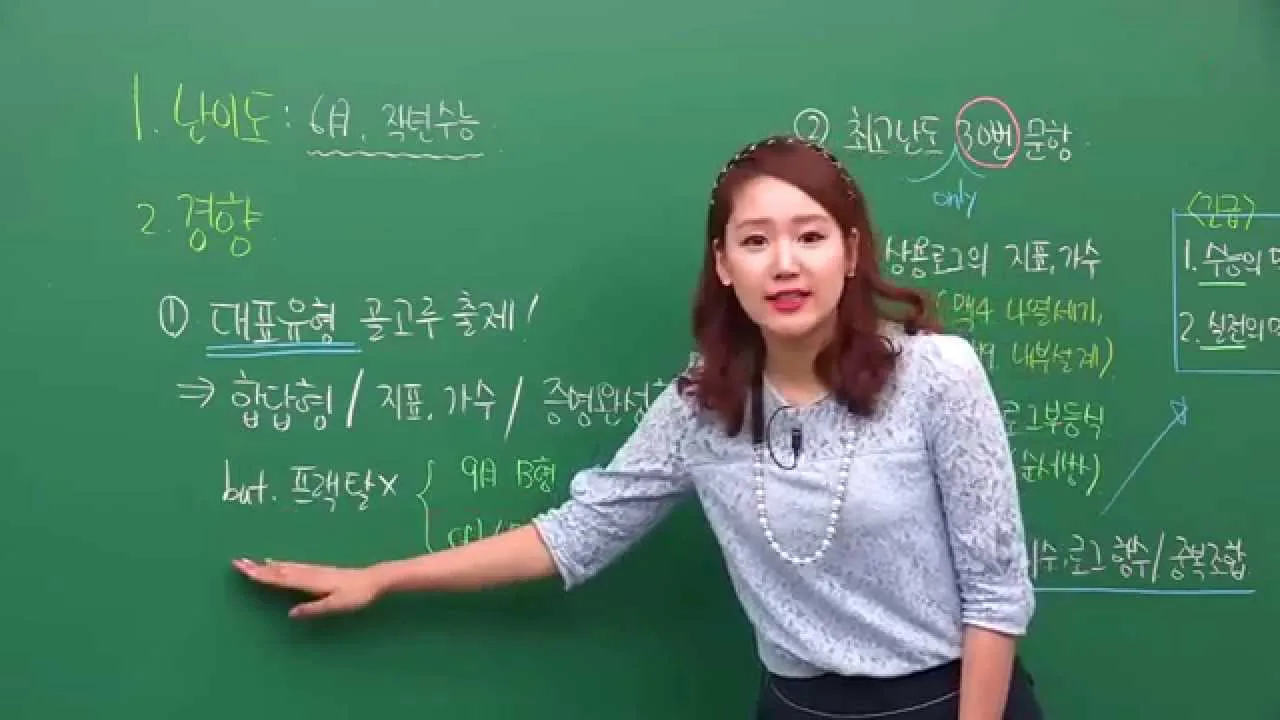 1. 난이도 : 6月, 작년수능
2. 경향
① 대표유형 골고루 출제!
⇒ 합답형 / 지표, 가수 / 증명완성
but. 프랙탈× { 9月 B형
② 최고난도 30번 문항
only
상용로그의 지표, 가수
(맥4 나열세기,
내부설계)
로그부등식
순서쌍)
로그함수 / 중복조합
<긴급>
1. 수능의
2. 실전의